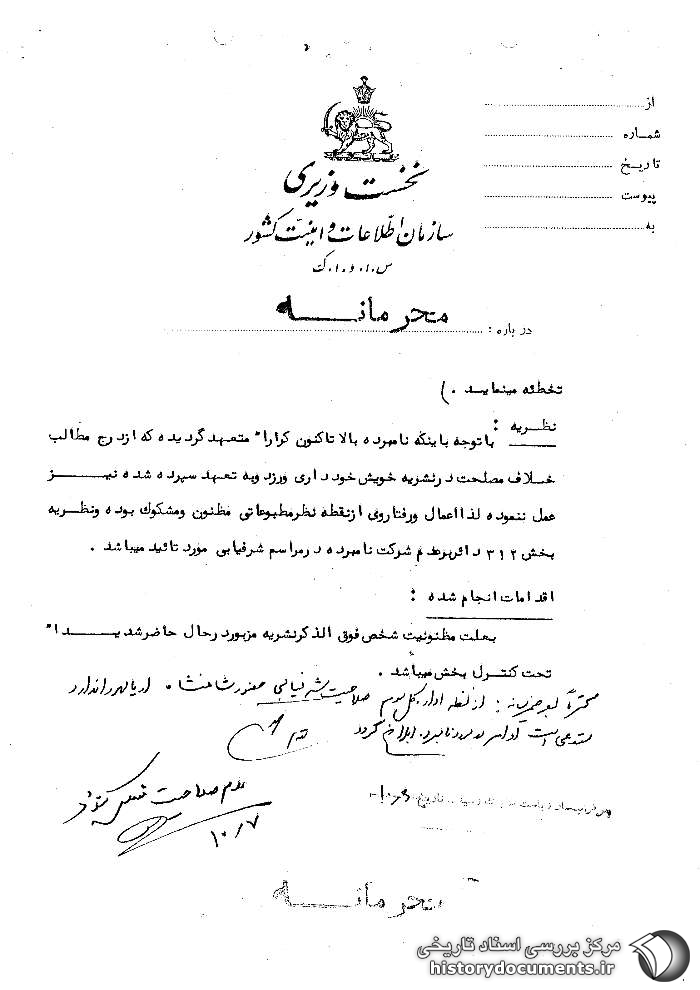 از
شماره
تاریخ
پیوست
به
نخست وزیری
سازمان اطلاعات و امنیت کشور
س.ا.و.ا.ک
محرمانه
درباره :
تخطئه مینماید . )
نظریه :
باتوجه باینکه نامبرده بالا تاکنون کرارا" متعهد گردیده که از درج مطالب
خلاف مصلحت در نشریه خویش خود داری ورزد وبه تعهد سپرده شده نیز
عمل ننموده لذا اعمال ورفتاروی ازنقطه نظرمطبوعاتی مظنون ومشکوک بوده ونظریه
بخش ۳۱۲ دائربرعدم شرکت نامبرده درمراسم شرفیابی مورد تائید میباشد .
اقدامات انجام شده :
بعلت مظنونیت شخص فوق الذکرنشریه مزبورد رحال حاضرشدیدا"
تحت کنترل بخش میباشد .
از نقطه اداره کل سوم صلاحیت شرفیابی حضور شاهنشاه آریامهر را ندارد
مستدعی است اوامر ابلاغ گردد
عدم صلاحیت
۱۰/۷
محرمانه
مرکز بررسی اسناد تاریخی
historydocuments.ir